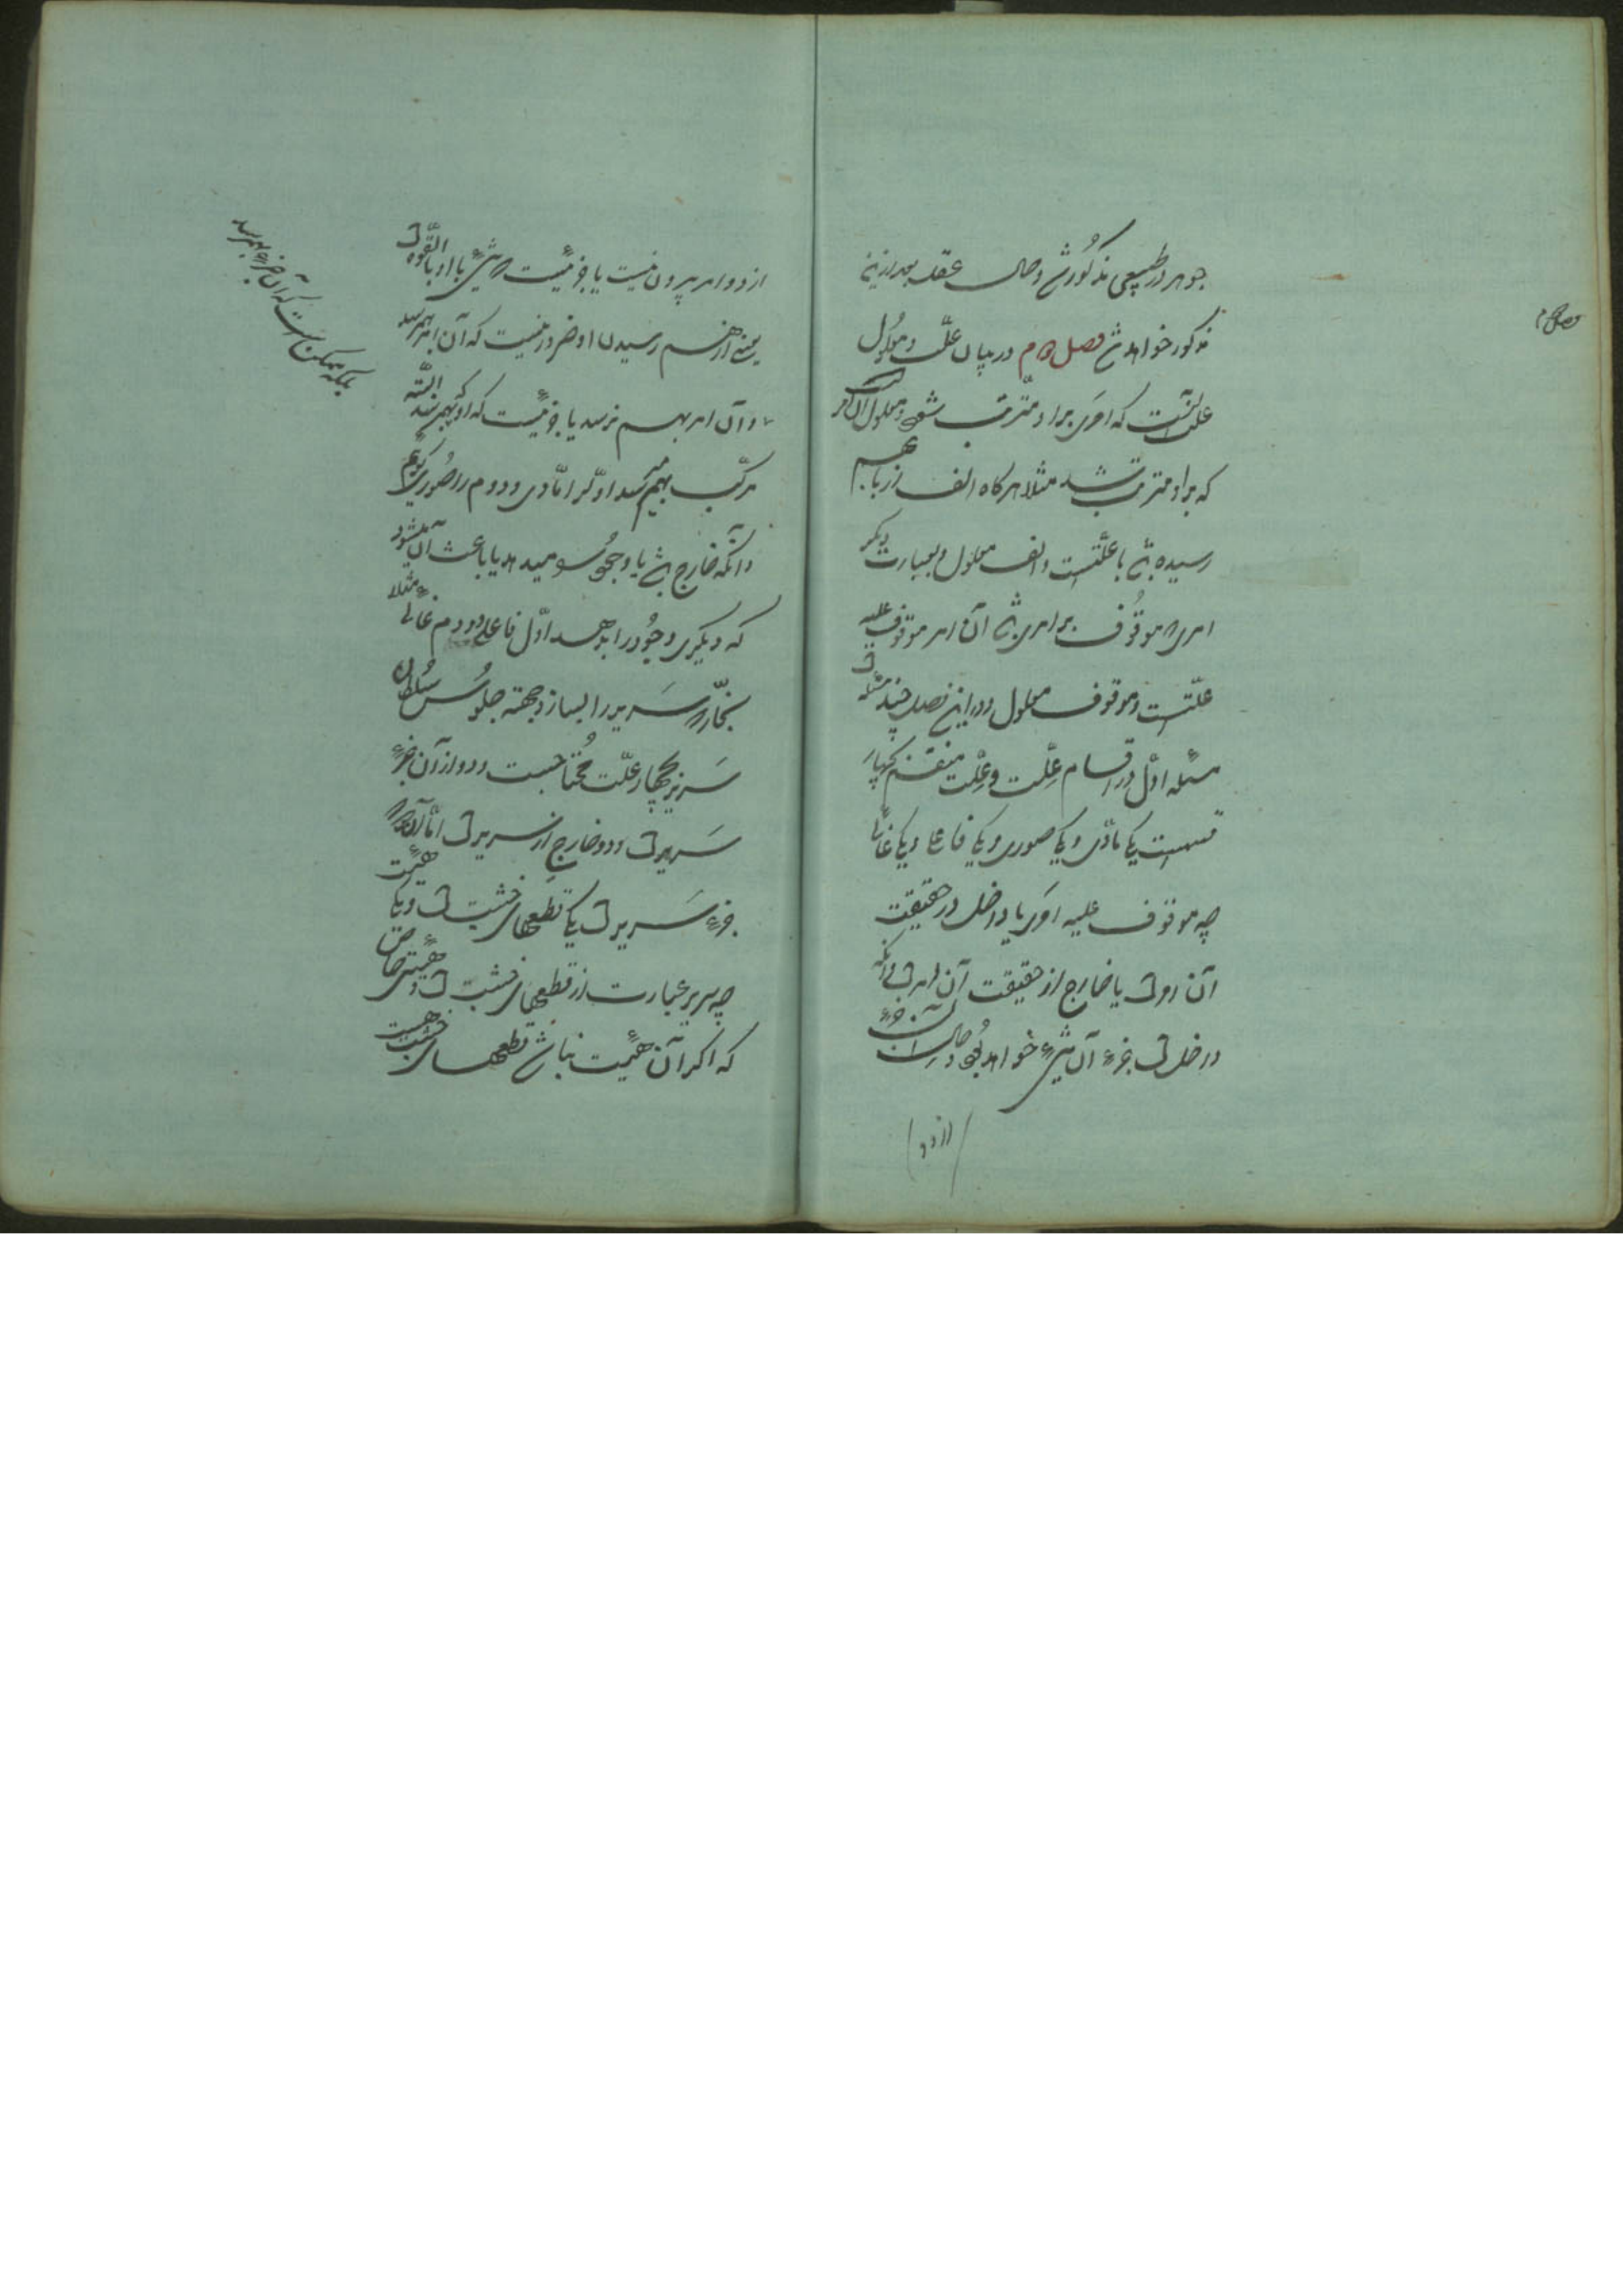 جوهر در طبیعی مذکور شد و حال عقل بعد ازین
مذکور خواهد شد فصل در بیان علّت و معلول
علت آنست که امری بر او مترتب شود و معلول آن امر
که بر او مترتب شد مثلا هرگاه الف از با بهم
رسیده باشد با علّتست و الف معلول و بعبارت دیگر
امری موقوف بر امری باشد آن امر موقوف علیه
علّتست و موقوف معلول و در این فصل چند مسئله
مسئله اوّل در اقسام علّت و علّت منقسم بچهار
قسمست یکی مادّی و یکی صوری و یکی فاعلی و یکی غائی
چه موقوف علیه امری یا داخل در حقیقت
آن امر یا خارج از حقیقت آن امر و آنکه
داخل جزء آن شیء خواهد بود و حال آن جزء
از دو
از دو امر بیرون نیست یا جزئیست که شیء با او بالقوه
یعنی از بهم رسیدن او ضرور نیست که آن امر بهم رسد
و آن امر بهم نرسد یا جزئیست که اگر بهم رسد البته
مرکّب بهم میرسد اوّل را مادّی و دوم را صوری گویند
و آنکه خارج باشد یا وجود میدهد یا باعث آن میشود
که دیگری وجود را بدهد اوّل فاعلی و دوم غائی مثلا
نجّار سریر را بسازد جهته جلوس سلطان
سریر بچهار علّت محتاجست و دو از آن جزء
سریر و دو خارج از سریر امّا آن دو
جزء سریر یکی قطعهای خشب و یکی هیئت
چه سریر عبارت از قطعهای خشب و هیئتی خاص
که اگر آن هیئت نباشد قطعهای خشب هست
بلکه ممکن است که آن جزء بهم رسد
فصل